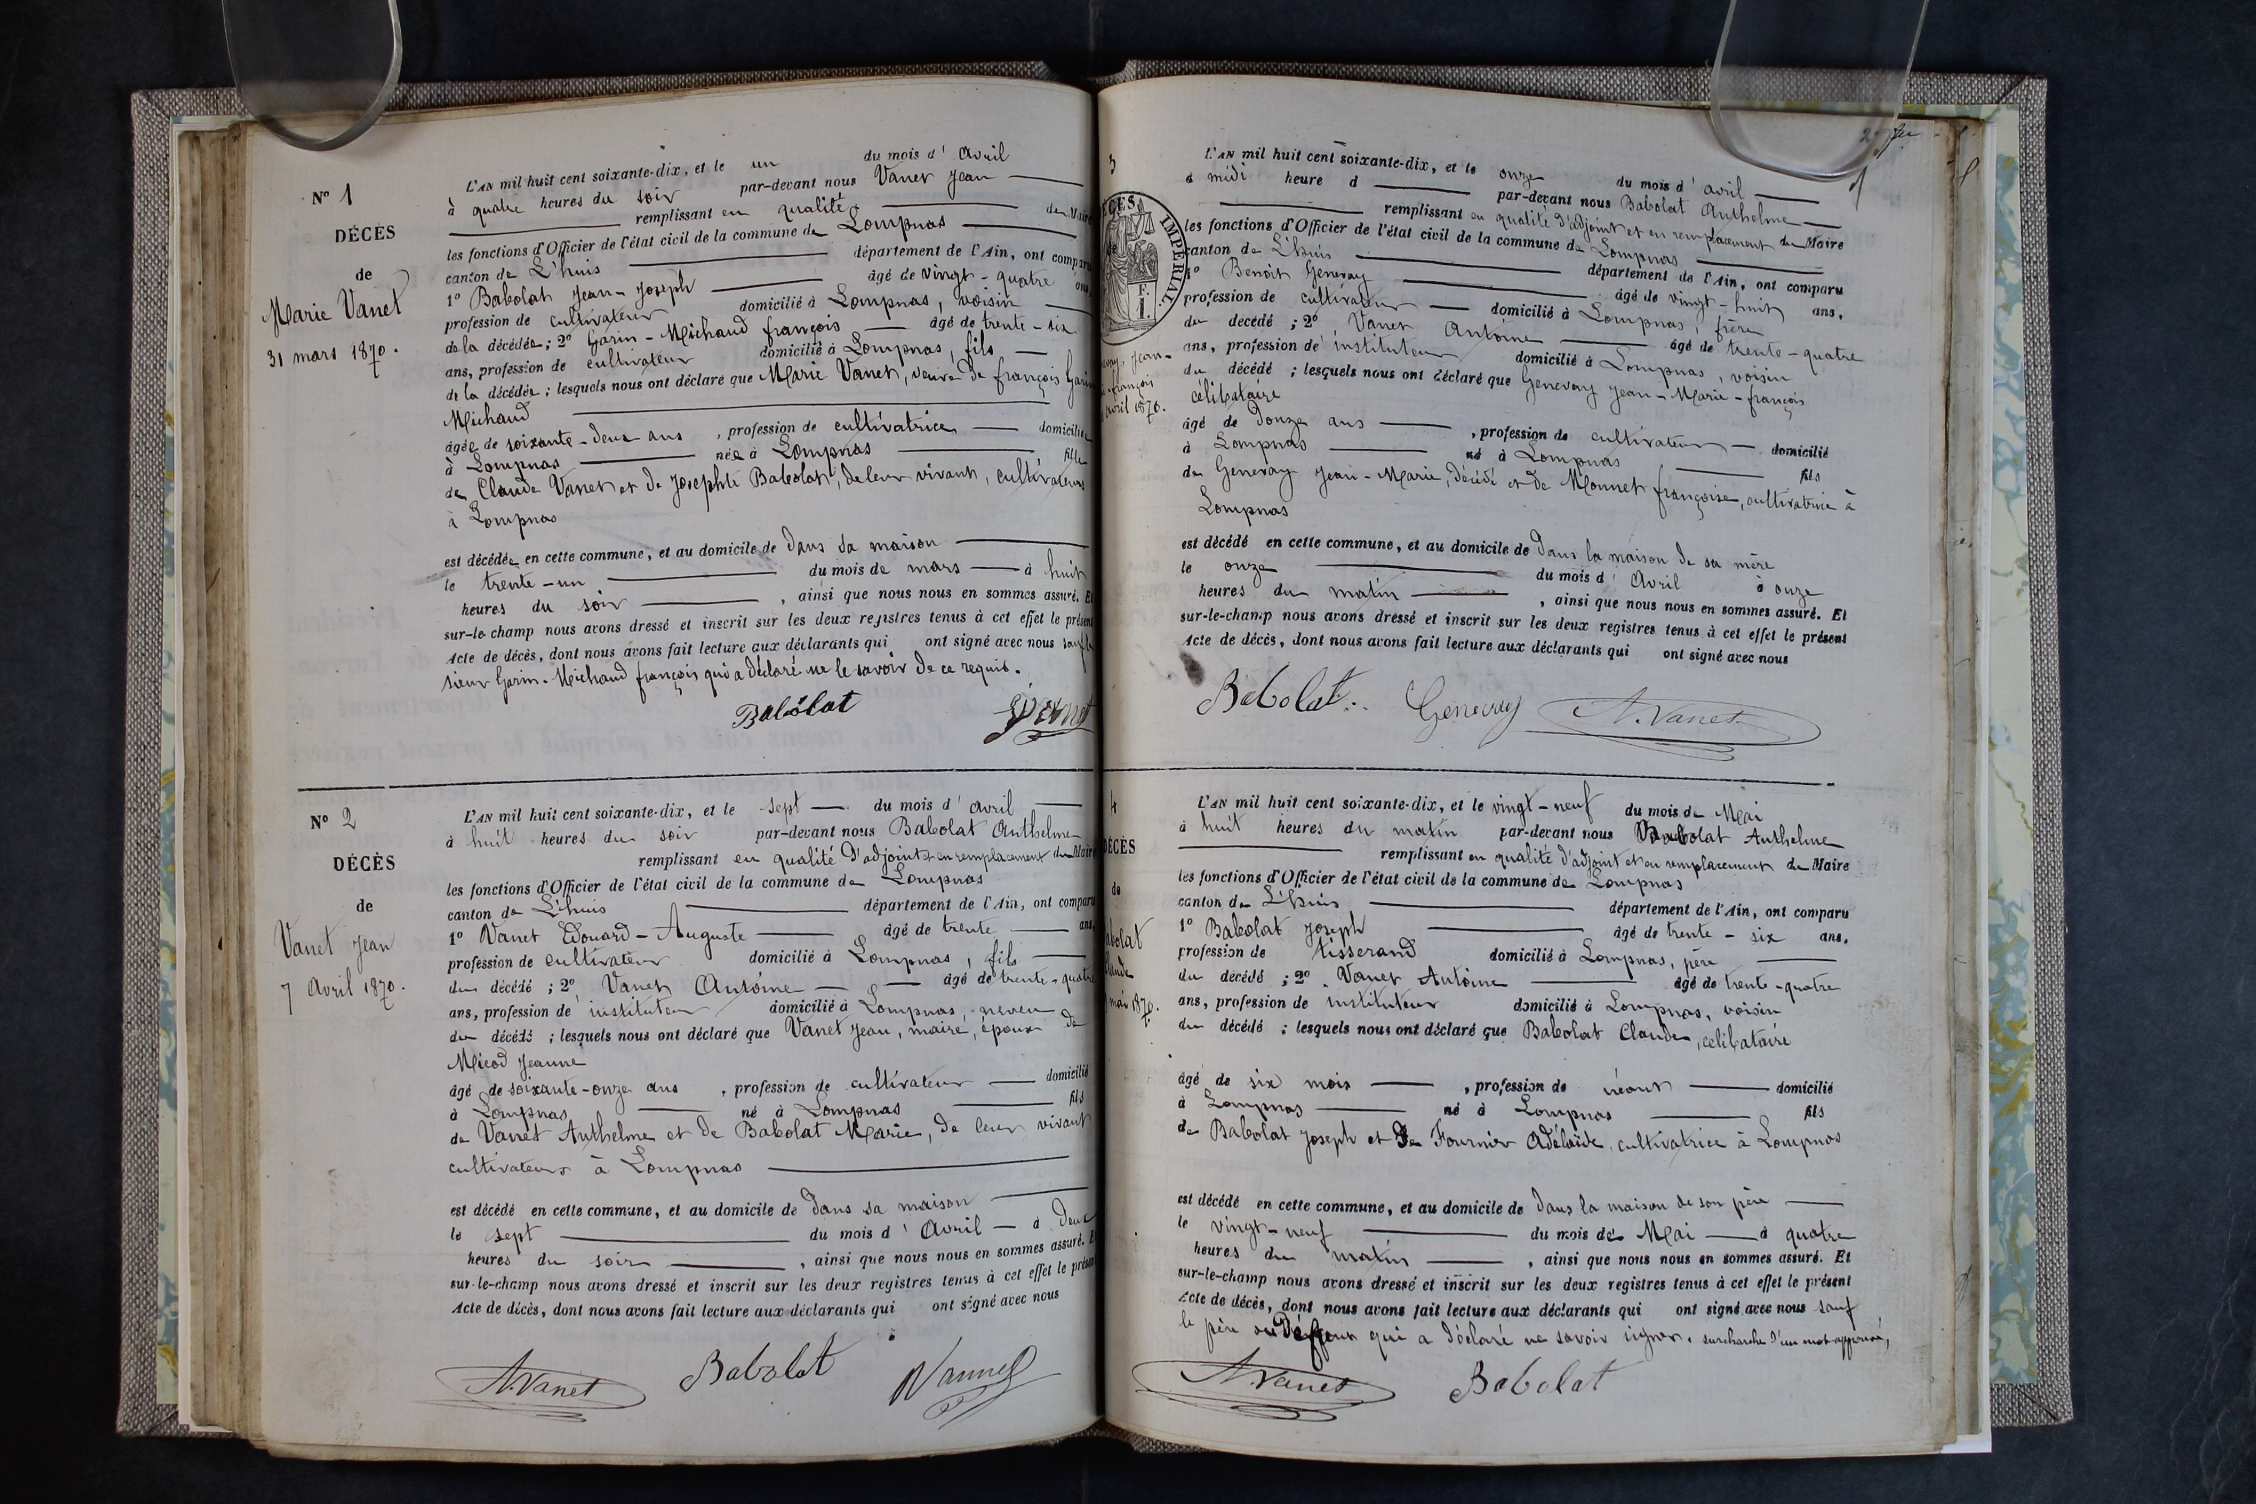 N° 1
DÉCÈS
de
Marie Vanet
31 mars 1870.
L'AN mil huit cent soixante-dix, et le un du mois d' avril
à quatre heures du soir par-devant nous Vanet Jean
remplissant en qualité de Maire
les fonctions d'Officier de l'état civil de la commune de Lompnas
canton de L'huis département de l'Ain, ont comparu
1° Babolat Jean-Joseph âgé de vingt-quatre ans,
profession de cultivateur domicilié à Lompnas, voisin
de la décédée ; 2° Garin-Michaud françois âgé de trente-six
ans, profession de cultivateur domicilié à Lompnas, fils
de la décédée ; lesquels nous ont déclaré que Marie Vanet, veuve de françois Garin
Michaud
âgée de soixante-deux ans , profession de cultivatrice domiciliée
à Lompnas née à Lompnas fille
de Claude Vanet et de Josephte Babolat, de leur vivant, cultivateurs
à Lompnas
est décédée en cette commune, et au domicile de dans sa maison
le trente-un du mois de mars à huit
heures du soir , ainsi que nous nous en sommes assuré. Et
sur-le-champ nous avons dressé et inscrit sur les deux registres tenus à cet effet le présent
Acte de décès, dont nous avons fait lecture aux déclarants qui ont signé avec nous sauf le
sieur Garin-Michaud françois qui a déclaré ne le savoir de ce requis.
Babolat
N° 2
DÉCÈS
de
Vanet Jean
7 avril 1870.
L'AN mil huit cent soixante-dix, et le sept du mois d' avril
à huit heures du soir par-devant nous Babolat Anthelme
remplissant en qualité d'adjoint et en remplacement du Maire
les fonctions d'Officier de l'état civil de la commune de Lompnas
canton de L'huis département de l'Ain, ont comparu
1° Vanet Edouard-Auguste âgé de trente ans,
profession de cultivateur domicilié à Lompnas, fils
du décédé ; 2° Vanet Antoine âgé de trente-quatre
ans, profession de instituteur domicilié à Lompnas, neveu
du décédé ; lesquels nous ont déclaré que Vanet Jean, maire, époux de
Micod Jeanne
âgé de soixante-onze ans , profession de cultivateur domicilié
à Lompnas né à Lompnas fils
de Vanet Anthelme et de Babolat Marie, de leur vivant
cultivateurs à Lompnas
est décédé en cette commune, et au domicile de dans sa maison
le sept du mois d' avril à deux
heures du soir , ainsi que nous nous en sommes assuré. E
sur-le-champ nous avons dressé et inscrit sur les deux registres tenus à cet effet le présen
Acte de décès, dont nous avons fait lecture aux déclarants qui ont signé avec nous
A. Vanet Babolat
3
ÉCÈS
IMPÉRIAL.
F.
1.
L'AN mil huit cent soixante-dix, et le onze du mois d' avril
à midi heure d par-devant nous Babolat Anthelme
remplissant en qualité d'adjoint et en remplacement du Maire
les fonctions d'Officier de l'état civil de la commune de Lompnas
canton de L'huis département de l'Ain, ont comparu
1° Benoit Genevay âgé de vingt-huit ans,
profession de cultivateur domicilié à Lompnas, frère
du décédé ; 2° Vanet Antoine âgé de trente-quatre
ans, profession de instituteur domicilié à Lompnas, voisin
du décédé ; lesquels nous ont déclaré que Genevay Jean-Marie-françois
célibataire
âgé de douze ans , profession de cultivateur domicilié
à Lompnas né à Lompnas fils
de Genevay Jean-Marie, décédé et de Monnet françoise, cultivatrice à
Lompnas
est décédé en cette commune, et au domicile de dans la maison de sa mère
le onze du mois d' avril à onze
heures du matin , ainsi que nous nous en sommes assuré. Et
sur-le-champ nous avons dressé et inscrit sur les deux registres tenus à cet effet le présent
Acte de décès, dont nous avons fait lecture aux déclarants qui ont signé avec nous
Babolat Genevay A. Vanet
4
DÉCÈS
de
abolat
laude
mai 1870.
L'AN mil huit cent soixante-dix, et le vingt-neuf du mois de Mai
à huit heures du matin par-devant nous Babolat Anthelme
remplissant en qualité d'adjoint et en remplacement du Maire
les fonctions d'Officier de l'état civil de la commune de Lompnas
canton de L'huis département de l'Ain, ont comparu
1° Babolat Joseph âgé de trente-six ans,
profession de tisserand domicilié à Lompnas, père
du décédé ; 2° Vanet Antoine âgé de trente-quatre
ans, profession de instituteur domicilié à Lompnas, voisin
du décédé ; lesquels nous ont déclaré que Babolat Claude, célibataire
âgé de six mois , profession de néant domicilié
à Lompnas né à Lompnas fils
de Babolat Joseph et de Fournier Adélaïde, cultivatrice à Lompnas
est décédé en cette commune, et au domicile de dans la maison de son père
le vingt-neuf du mois de Mai à quatre
heures du matin , ainsi que nous nous en sommes assuré. Et
sur-le-champ nous avons dressé et inscrit sur les deux registres tenus à cet effet le présent
Acte de décès, dont nous avons fait lecture aux déclarants qui ont signé avec nous sauf
le père qui a déclaré ne savoir signer. surcharche d'un mot approuvé,
A. Vanet Babolat